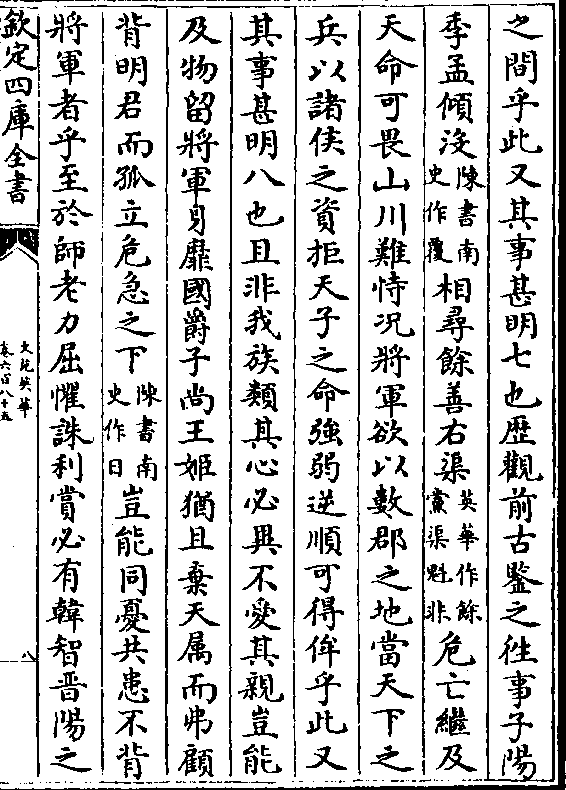 之間乎此又其事甚明七也歴觀前古鑒之徃事子陽
季孟傾没陳書南史作覆相尋餘善右渠英華作餘黨渠魁非危亡繼及
天命可畏山川難恃况將軍欲以數郡之地當天下之
兵以諸侯之資拒天子之命強弱逆順可得侔乎此又
其事甚明八也且非我族類其心必異不愛其親豈能
及物留將軍身縻國爵子尚王姬猶且棄天属而弗顧
背明君而孤立危急之下陳書南史作日豈能同憂共患不背
將軍者乎至於師老力屈懼誅利賞必有韓智晋陽之
欽定四庫全書
文苑英華
卷六百八十五
八